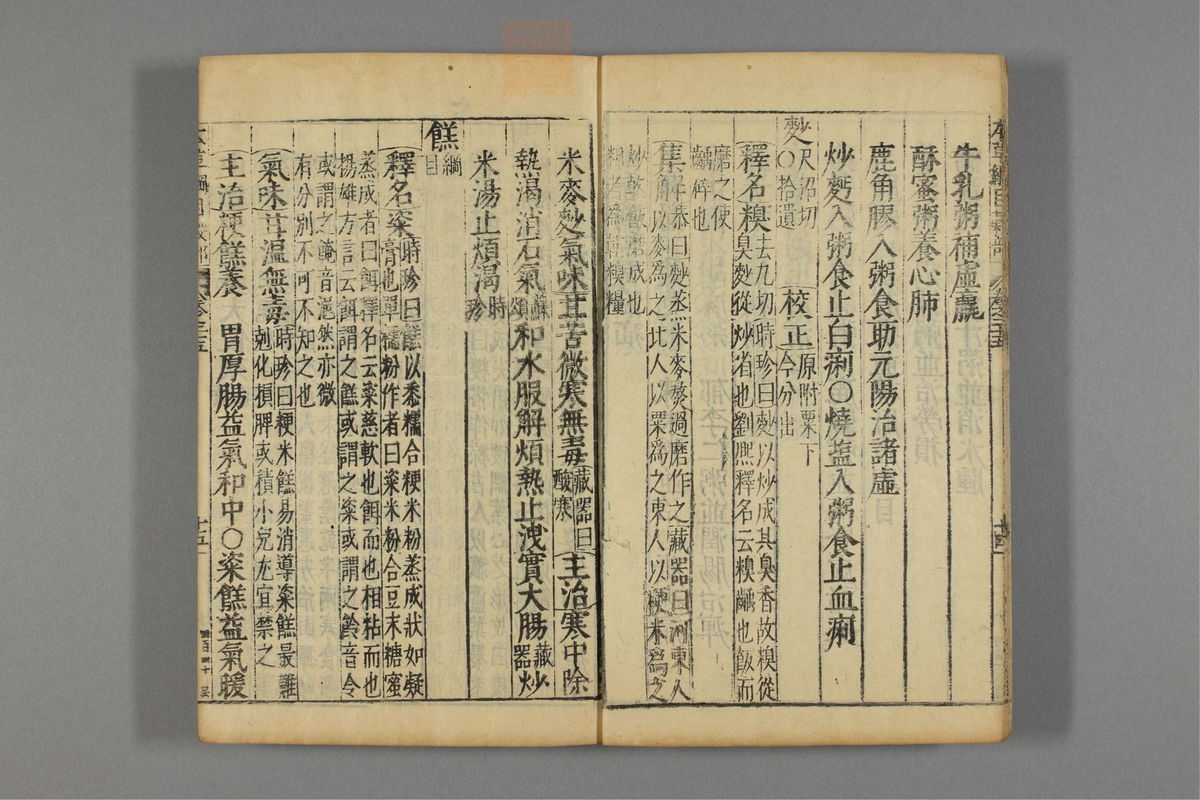 牛乳粥補虛羸
酥蜜粥養心肺
鹿角膠入粥食助元陽治諸虛
炒麪入粥食止白痢〇燒塩入粥食止血痢
麨
尺沼切
〇拾遺
校正
原附粟下
今分出
釋名糗
去九切時珍曰麨以炒成其臭香故糗從
臭麨從炒省也劉熈釋名云糗齲也飯而
磨之使
齲碎也
集解
恭曰麨蒸米麥熬過磨作之藏器曰河東人
以麥為之北人以粟為之東人以粳米為之
炒乾飯磨成也
粗者為乾糗糧
米麥麨氣味甘苦微寒無毒
藏器曰
酸寒
主治寒中除
熱渴消石氣
蘇
頌
和水服解煩熱止洩實大腸
藏
器
炒
米湯止煩渴
時
珍
餻
綱
目
釋名粢
時珍曰餻以黍糯合粳米粉蒸成狀如凝
膏也單糯粉作者曰粢米粉合豆末糖蜜
蒸成者曰餌釋名云粢慈軟也餌而也相粘而也
揚雄方言云餌謂之餻或謂之粢或謂之䬾音令
或謂之䬼音浥然亦微
有分別不可不知之也
氣味甘溫無毒
時珍曰粳米餻易消導粢餻最難
剋化損脾或積小兒尤宜禁之
主治粳餻養 胃厚腸益氣和中〇粢餻益氣暖
十五